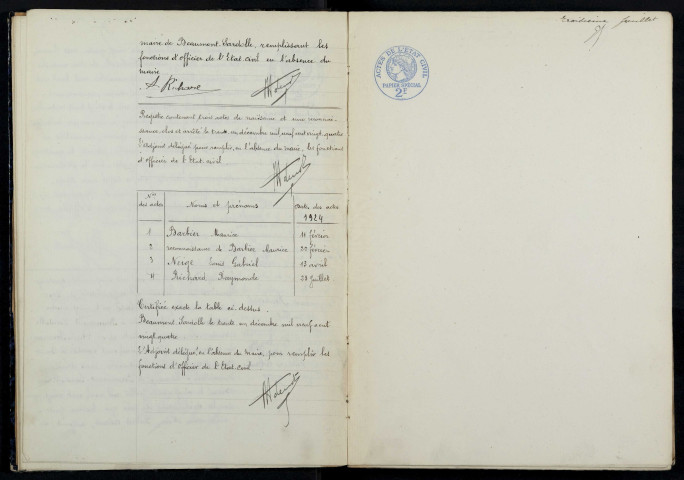 mairie de Beaumont-Sardolle, remplissant les
fonctions d'officier de l'Etat civil en l'absence du
maire
A. Richard
Registre contenant trois actes de naissance et une reconnais-
sance clos et arrêté le trente un décembre mil neuf cent vingt quatre
l'adjoint délégué pour remplir, en l'absence du maire, les fonctions
d'officier de l'Etat-civil
Nos des actes
Noms et prénoms
Dates des actes
1924
1 Barbier Maurice 11 février
2 reconnaissance de Barbier Maurice 22 février
3 Neige Louis Gabriel 13 avril
4 Richard Raymonde 28 juillet
Certifiée exacte la table ci-dessus.
Beaumont Sardolle le trente un décembre mil neuf cent
vingt quatre
L'Adjoint délégué, en l'absence du maire, pour remplir les
fonctions d'Officier de l'Etat-civil
feuillet
ACTES DE L'ETAT CIVIL
PAPIER SPECIAL
2F